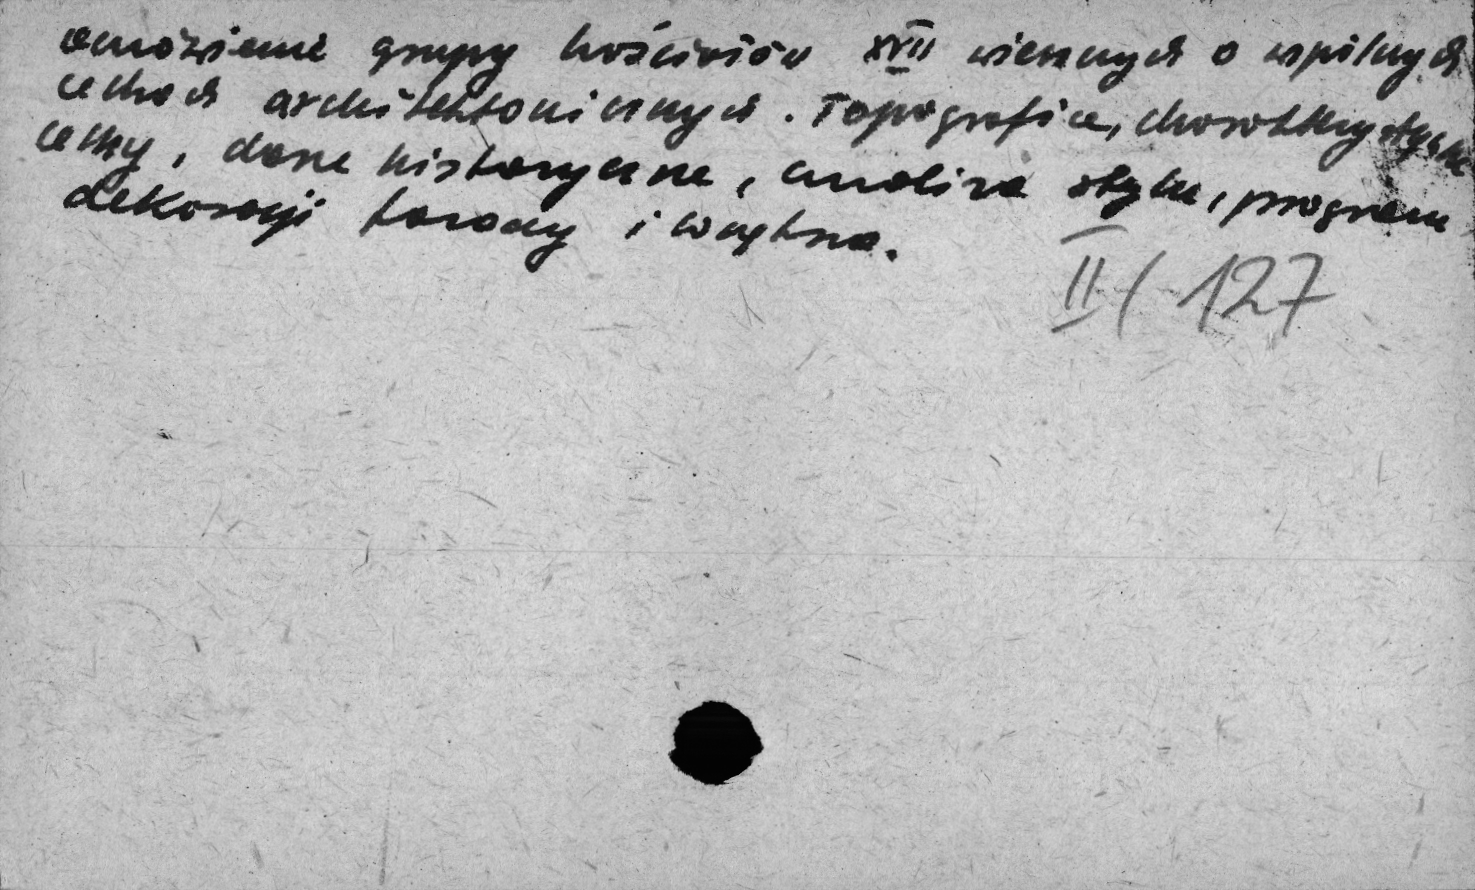 omówienie grupy kościołów XVII wiecznych o wspólnych
cechach architektonicznych. Topografia, charakterystyczne
cechy, dane historyczne, analiza stylu, program
dekoracji fasady i wnętrza.
II/127